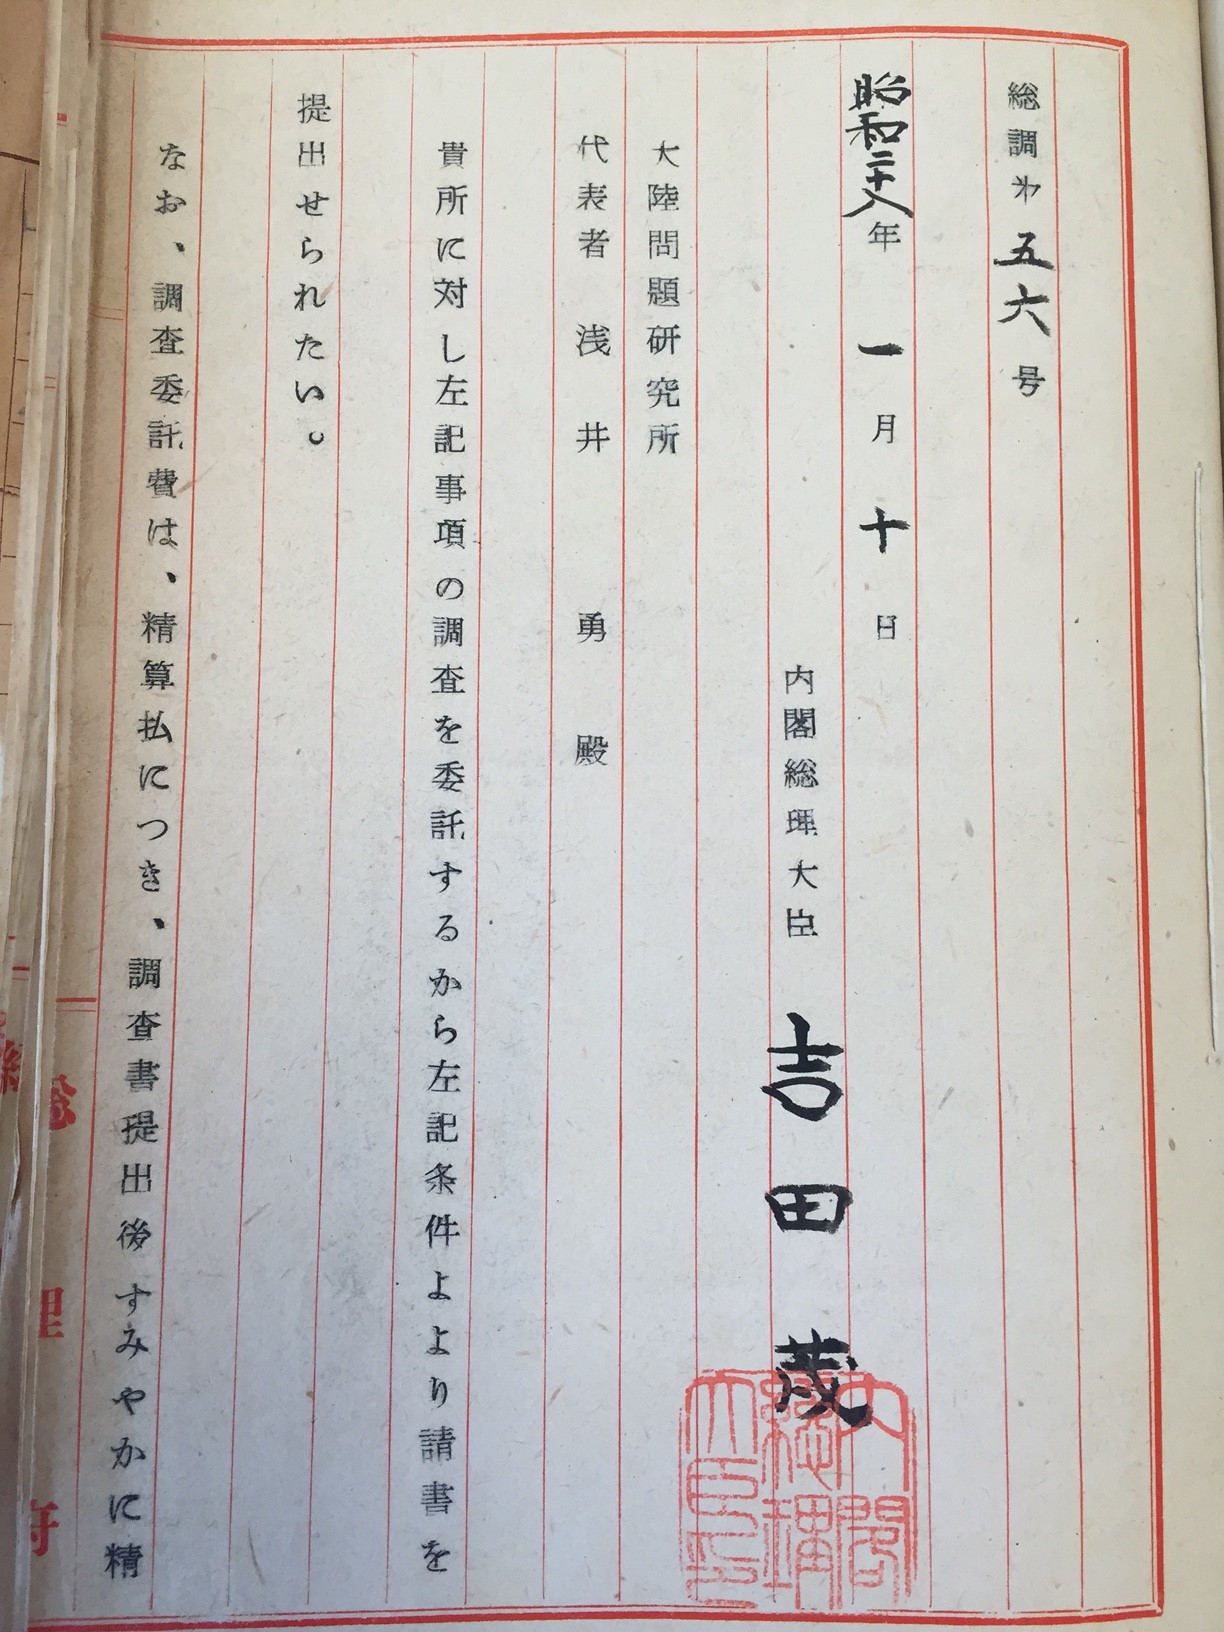 総調才五六号
昭和二十八年一月十日
内閣総理大臣 吉田茂
大陸問題研究所
代表者 浅井 勇 殿
貴所に対し左記事項の調査を委託するから左記条件よより請書を
提出せられたい。
なお、調査委託費は、精算払につき、調査書提出後すみやかに精
内閣
総理
大臣印
総理府